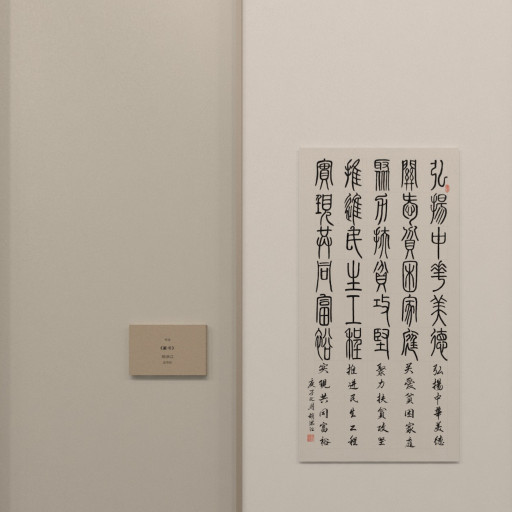 弘揚中華美德
關愛貧困家庭
聚力扶貧攻堅
推進民生工程
實現共同富裕
弘揚中華美德
关愛貧困家庭
聚力扶貧攻坚
推進民生工程
实現共同富裕
庚子九月